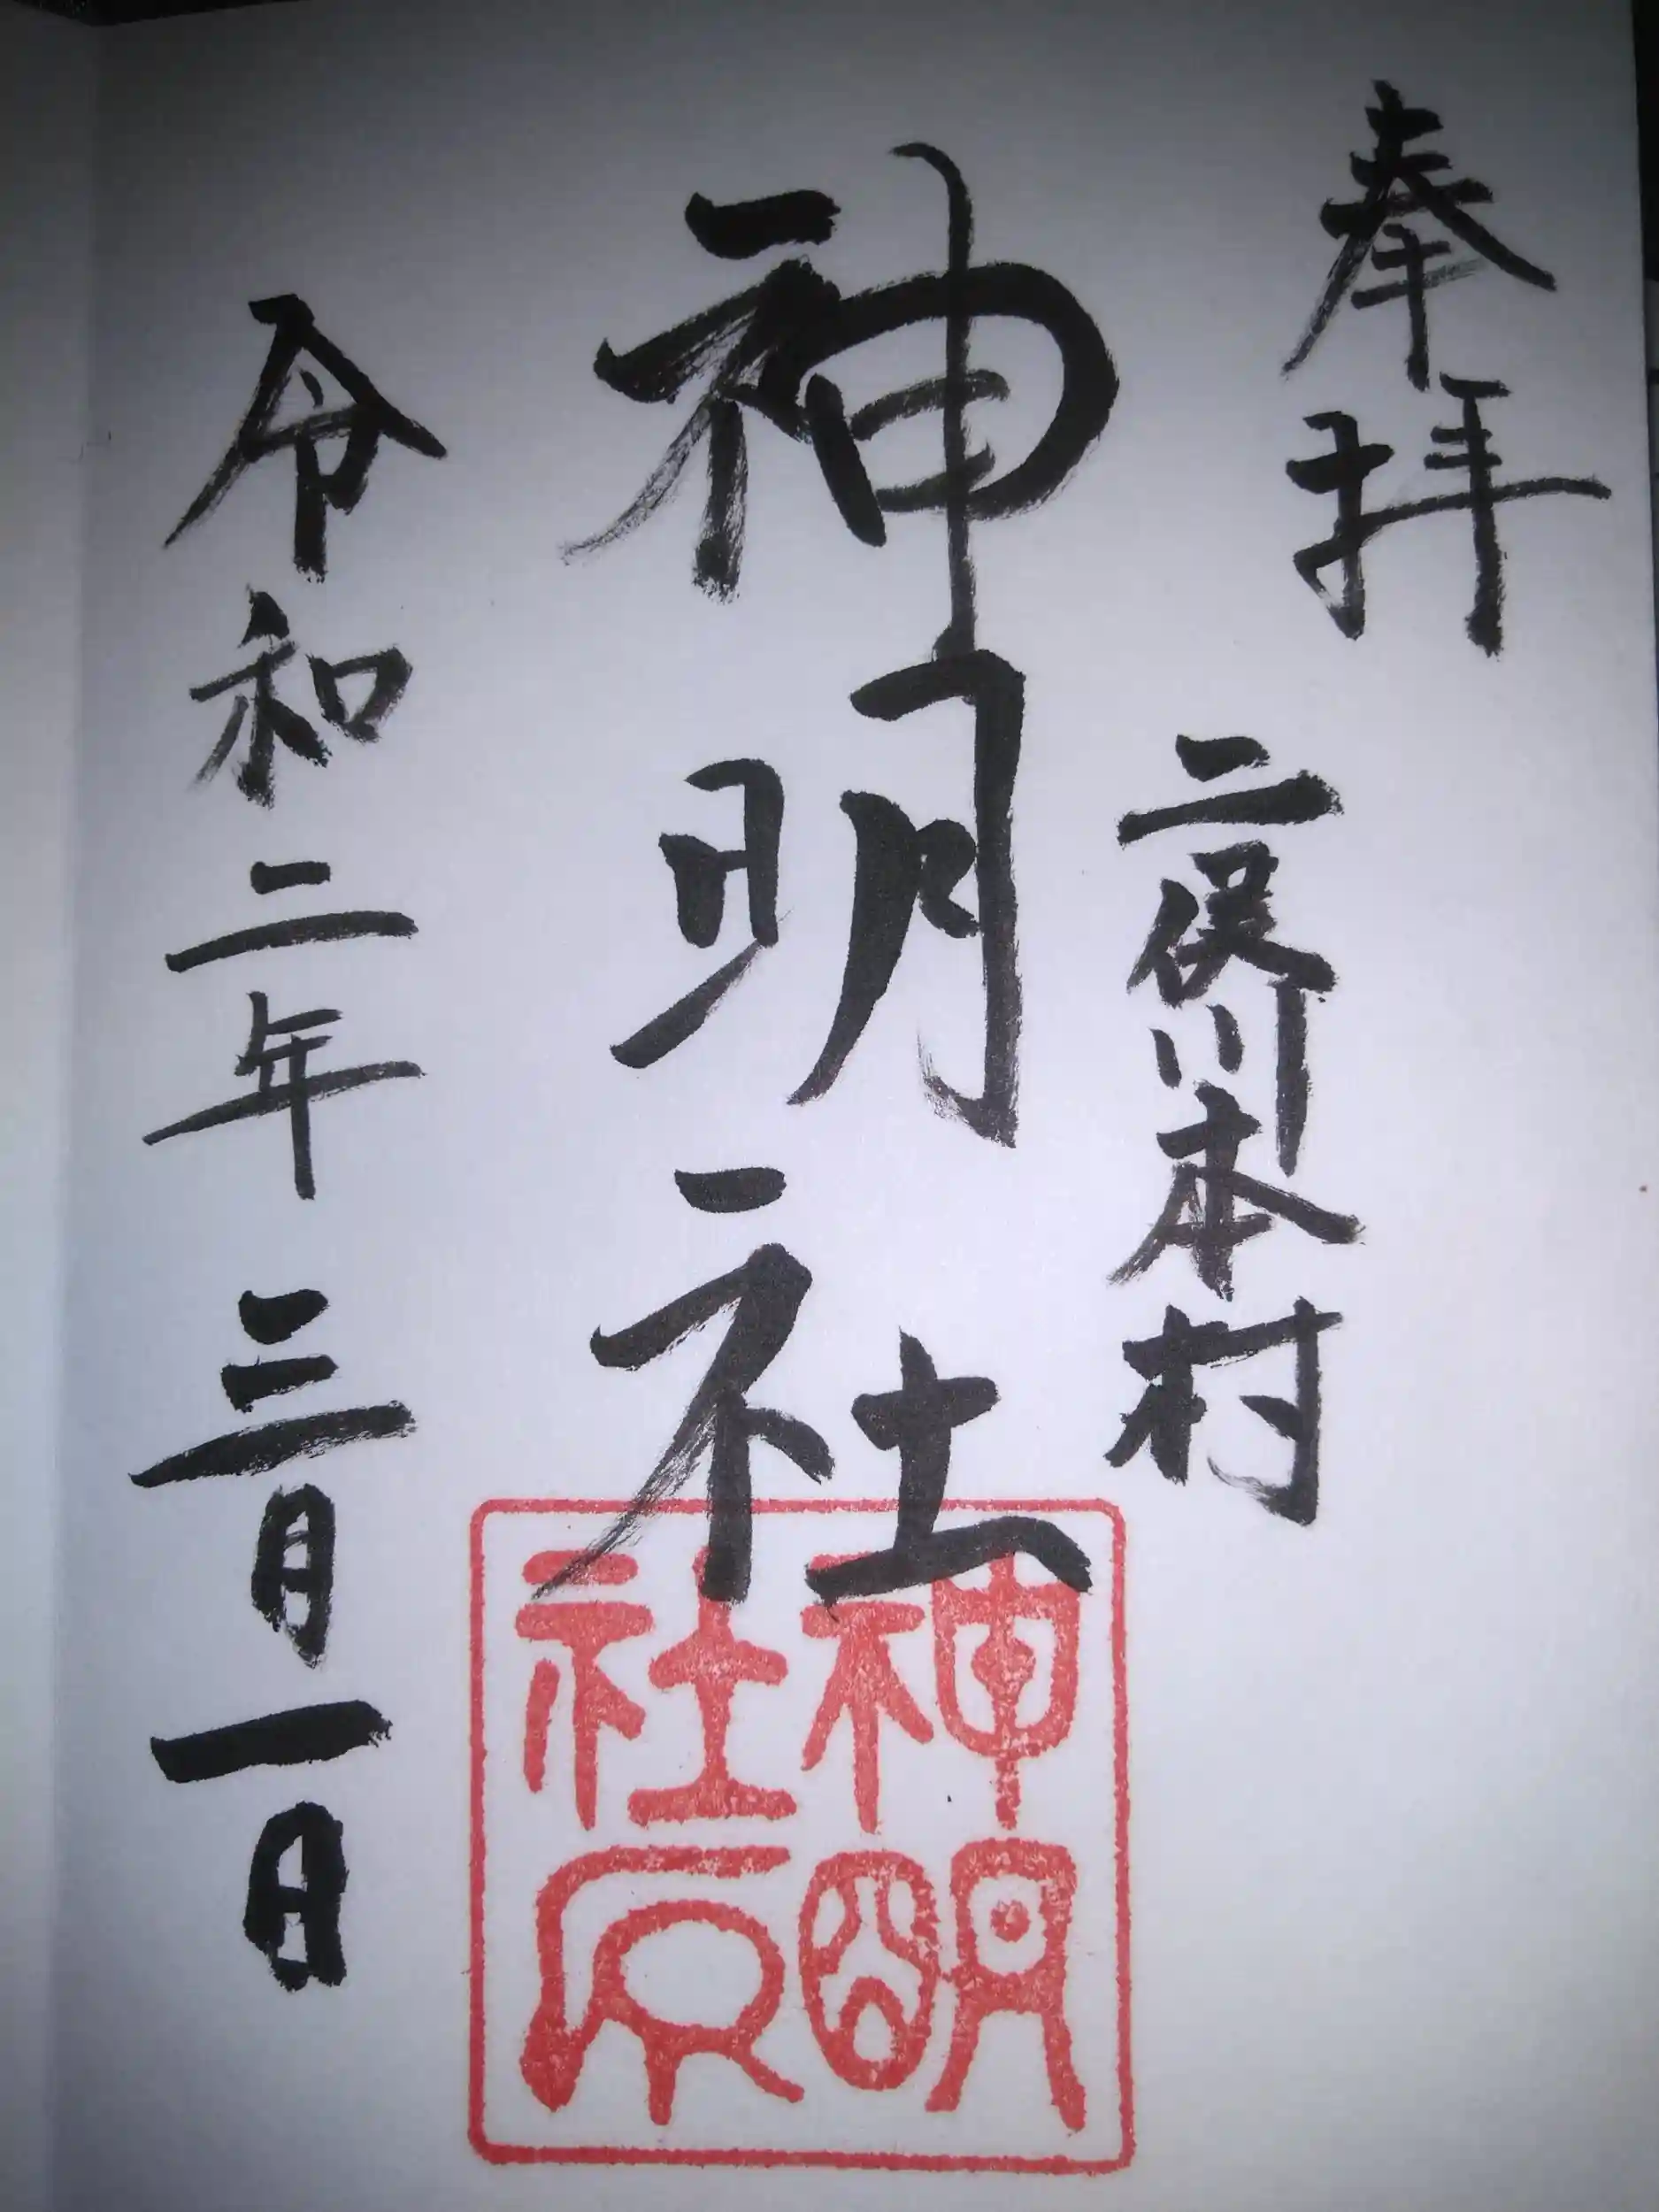 奉拝
二俣川本村
神明社
神明社印
令和二年三月一日